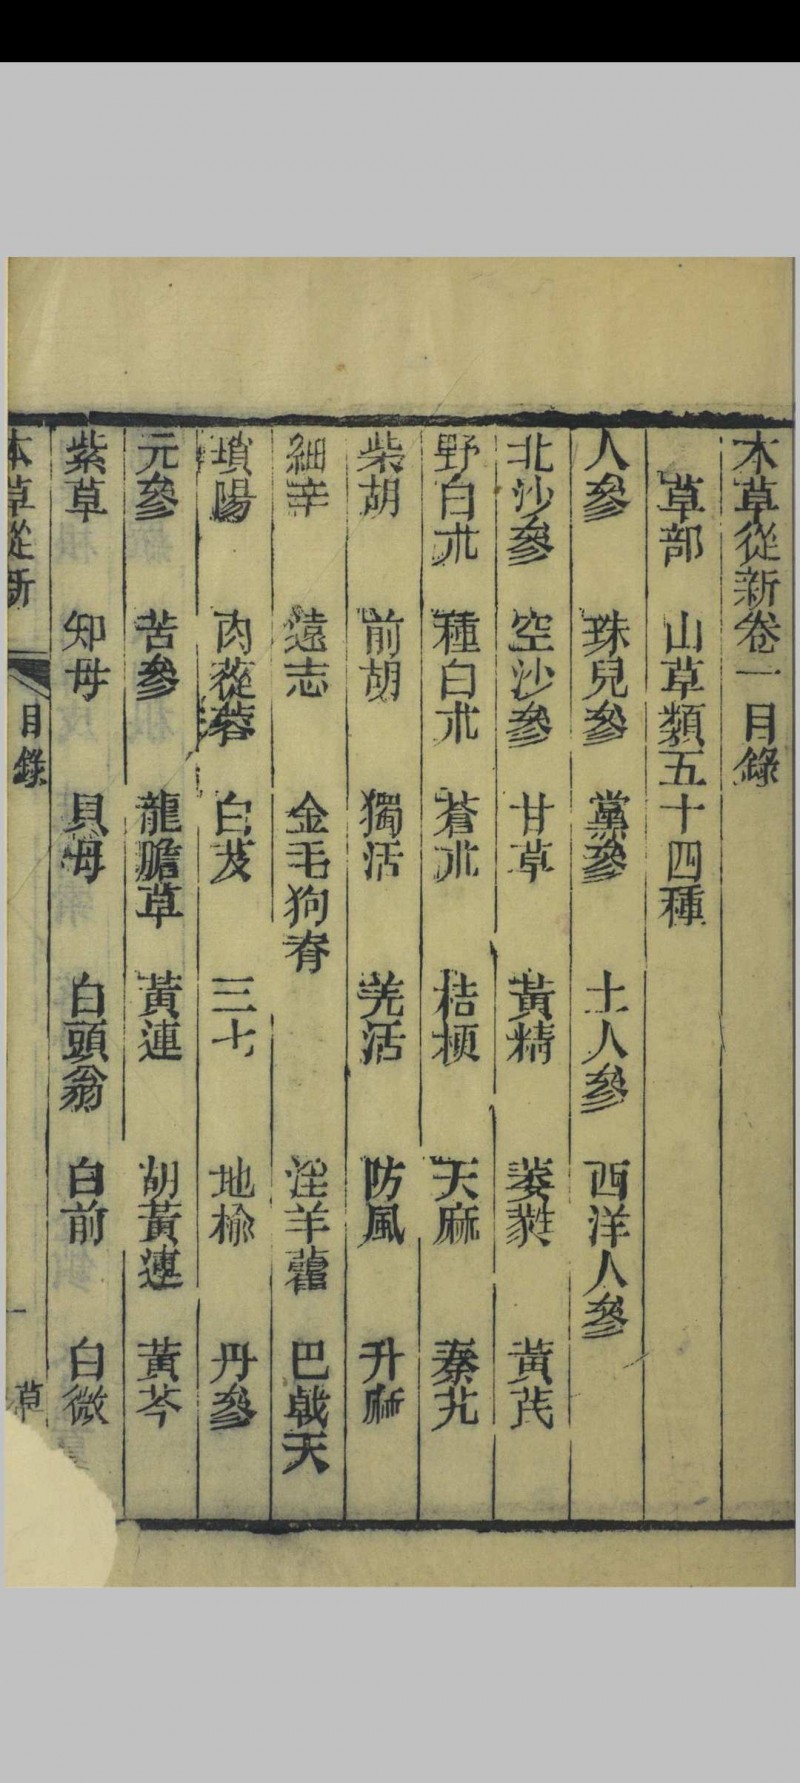 本草從新卷一目錄
草部 山草類五十四種
人參 珠兒參 黨參 土人參 西洋人參
北沙參 空沙參 甘草 黃精 萎蕤 黃芪
野白朮 種白朮 蒼朮 桔梗 天麻 秦艽
柴胡 前胡 獨活 羌活 防風 升麻
細辛 遠志 金毛狗脊 淫羊藿 巴戟天
瑣陽 肉蓯蓉 白芨 三七 地榆 丹參
元參 苦參 龍膽草 黃連 胡黃連 黃芩
紫草 知母 貝母 白頭翁 白前 白微
本草從新 目錄 一 草